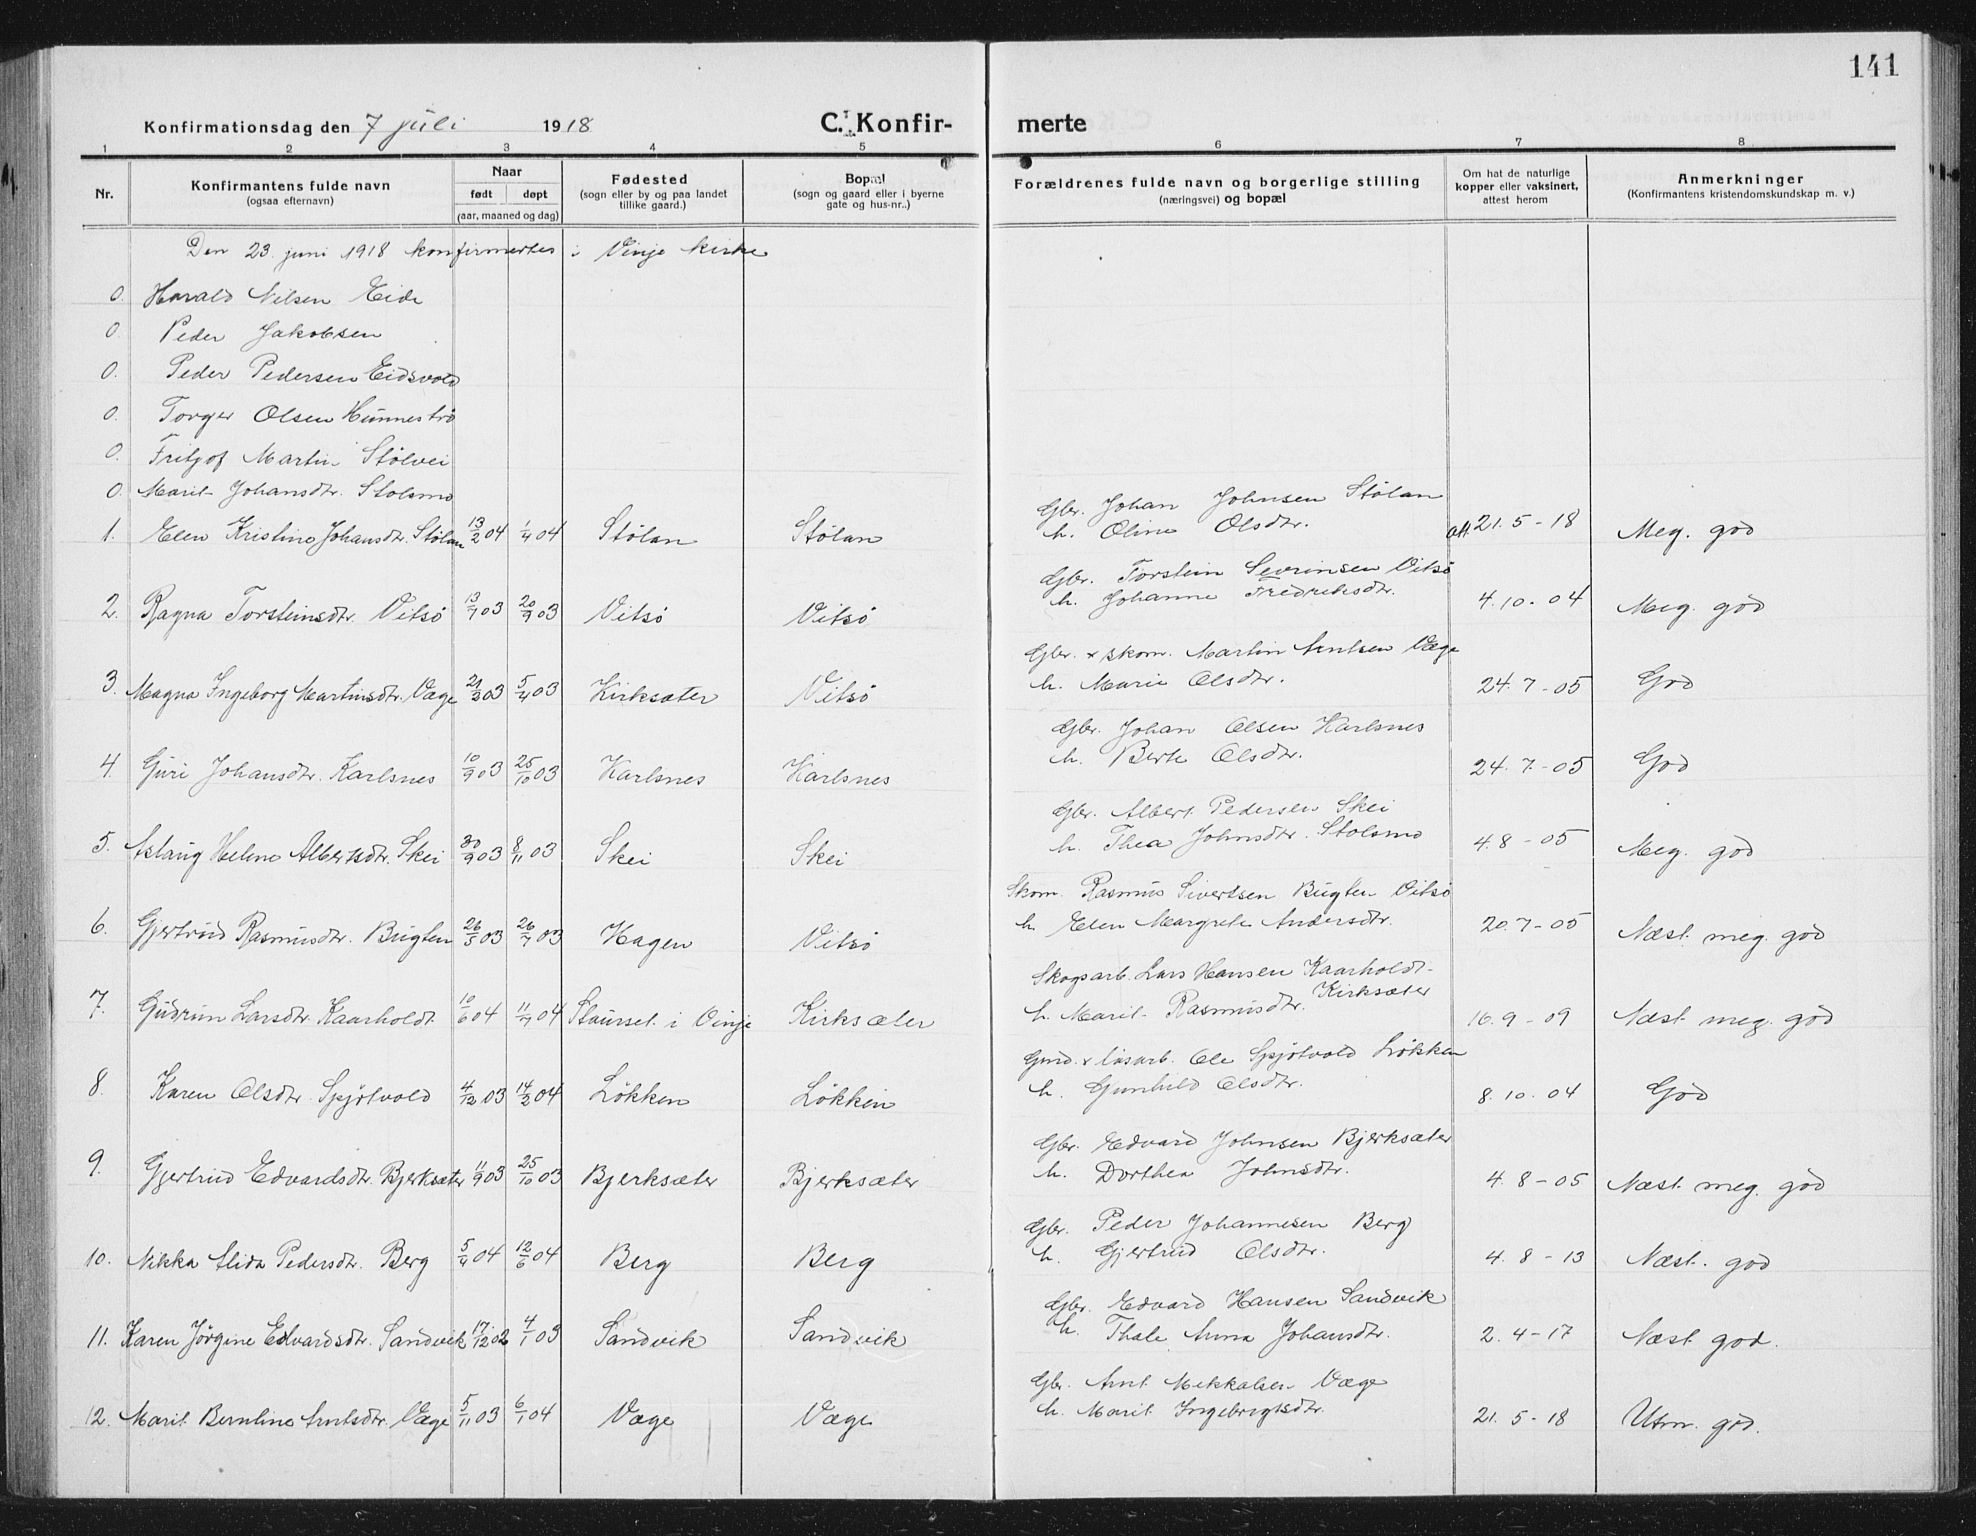 141
Konfirmationsdag den 7 juli 1918 C. Konfir- merte
1 2 3 4 5 6 7 8
Nr. Konfirmantens fulde navn (ogsaa efternavn) Naar født døpt (aar, maaned og dag) Fødested (sogn eller by og paa landet tillike gaard.) Bopæl (sogn og gaard eller i byerne gate og hus-nr..) Forældrenes fulde navn og borgerlige stilling (næringsvei) og bopæl Om hat de naturlige kopper eller vaksinert, attest herom Anmerkninger (Konfirmantens kristendomskundskap m. v.)
Den 23 juni 1918 konfirmertes i Vinje kirke
0. Harald Nilsen Eide
0. Peder Jakobsen
0. Peder Pedersen Eidsvold
0. Torger Olsen Hunnestrø
0. Fritjof Martin Stølvei
0. Marit Johansdtr. Stolsmo
Gbr. Johan Johnsen Stølan
1. Elen Kristine Johansdtr. Stølan 13/2 04 1/4 04 Stølan Stølan h. Oline Olsdtr. att. 21.5-18 Meg. god
Gbr. Torstein Sevrinsen Vitsø
2. Ragna Torsteinsdtr. Vitsø 13/7 03 20/9 03 Vitsø Vitsø h. Johanne Fredriksdtr. 4.10-04 Meg. god
Gbr. & skom. Martin Arntsen Væge
3. Magna Ingeborg Martinsdtr. Væge 21/2 03 5/4 03 Kirksæter Vitsø h. Marie Olsdtr. 24.7-05 God
Gbr. Johan Olsen Karlsnes
4. Guri Johansdtr. Karlsnes 10/9 03 25/10 03 Karlsnes Karlsnes h. Berte Olsdtr. 24.7-05 God
Gbr. Albert Pedersen Skei
5. Aslaug Helene Albertsdtr. Skei 30/9 03 8/11 03 Skei Skei h. Thea Johnsdtr. Stolsmo 4.8-05 Meg. god
Skom. Rasmus Sivertsen Bugten Vitsø
6. Gjertrud Rasmusdtr. Bugten 26/5 03 26/7 03 Hagen Vitsø h. Elen Margrete Andersdtr. 20.7-05 Næst meg. god
Skogsarb. Lars Hansen Kaarholdt
7. Gudrun Larsdtr. Kaarholdt 10/6 04 11/9 04 Staurset i Vinje Kirksæter h. Marit Rasmusdtr. Kirksæter 16.9-09 Næst meg. god
Ole Spjøtvold Løkken
8. Karen Olsdtr. Spjøtvold 4/12 03 14/2 04 Løkken Løkken h. Gunhild Olsdtr. 8.10.04 God
Gbr. Edvard Johnsen Bjerksæter
9. Gjertrud Edvardsdtr. Bjerksæter 11/9 03 25/10 03 Bjerksæter Bjerksæter h. Dorthea Johnsdtr. 4.8-05 Næst meg. god
Gbr. Peder Johannesen Berg
10. Nikka Alida Pedersdtr. Berg 5/4 04 12/6 04 Berg Berg h. Gjertrud Olsdtr. 4.8-13 Næst. god
Gbr. Edvard Hansen Sandvik
11. Karen Jørgine Edvardsdtr. Sandvik 17/12 02 4/1 03 Sandvik Sandvik h. Thale Anna Johansdtr. 2.4-17 Næst god.
Gbr. Arnt Mekkalsen Væge
12. Marit Berntine Arntsdtr. Væge 5/11 03 6/1 04 Væge Væge h. Marit Ingebrigtsdtr. 21.5-18 Utm. god.